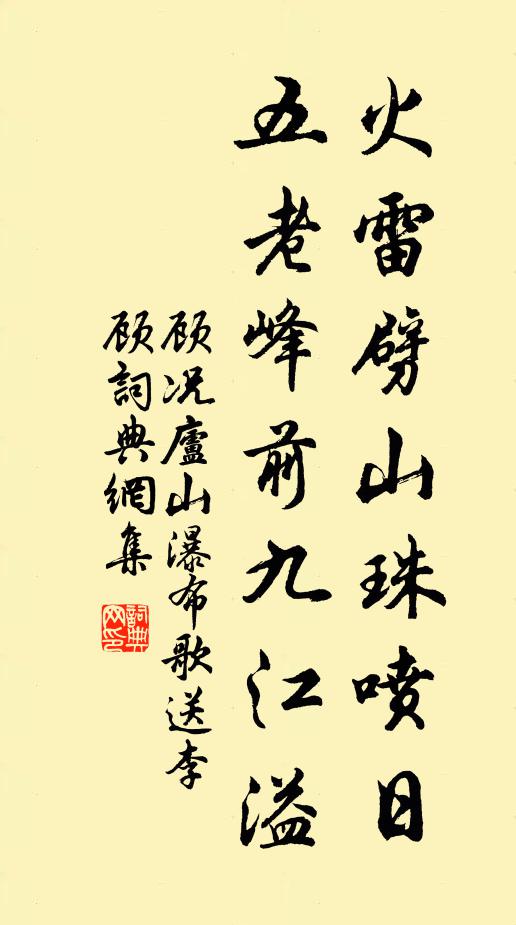 火雷劈山珠喷日
五老峰前九江溢
顾况廬山瀑布歌送李
顾詞典網集
詞典
网印